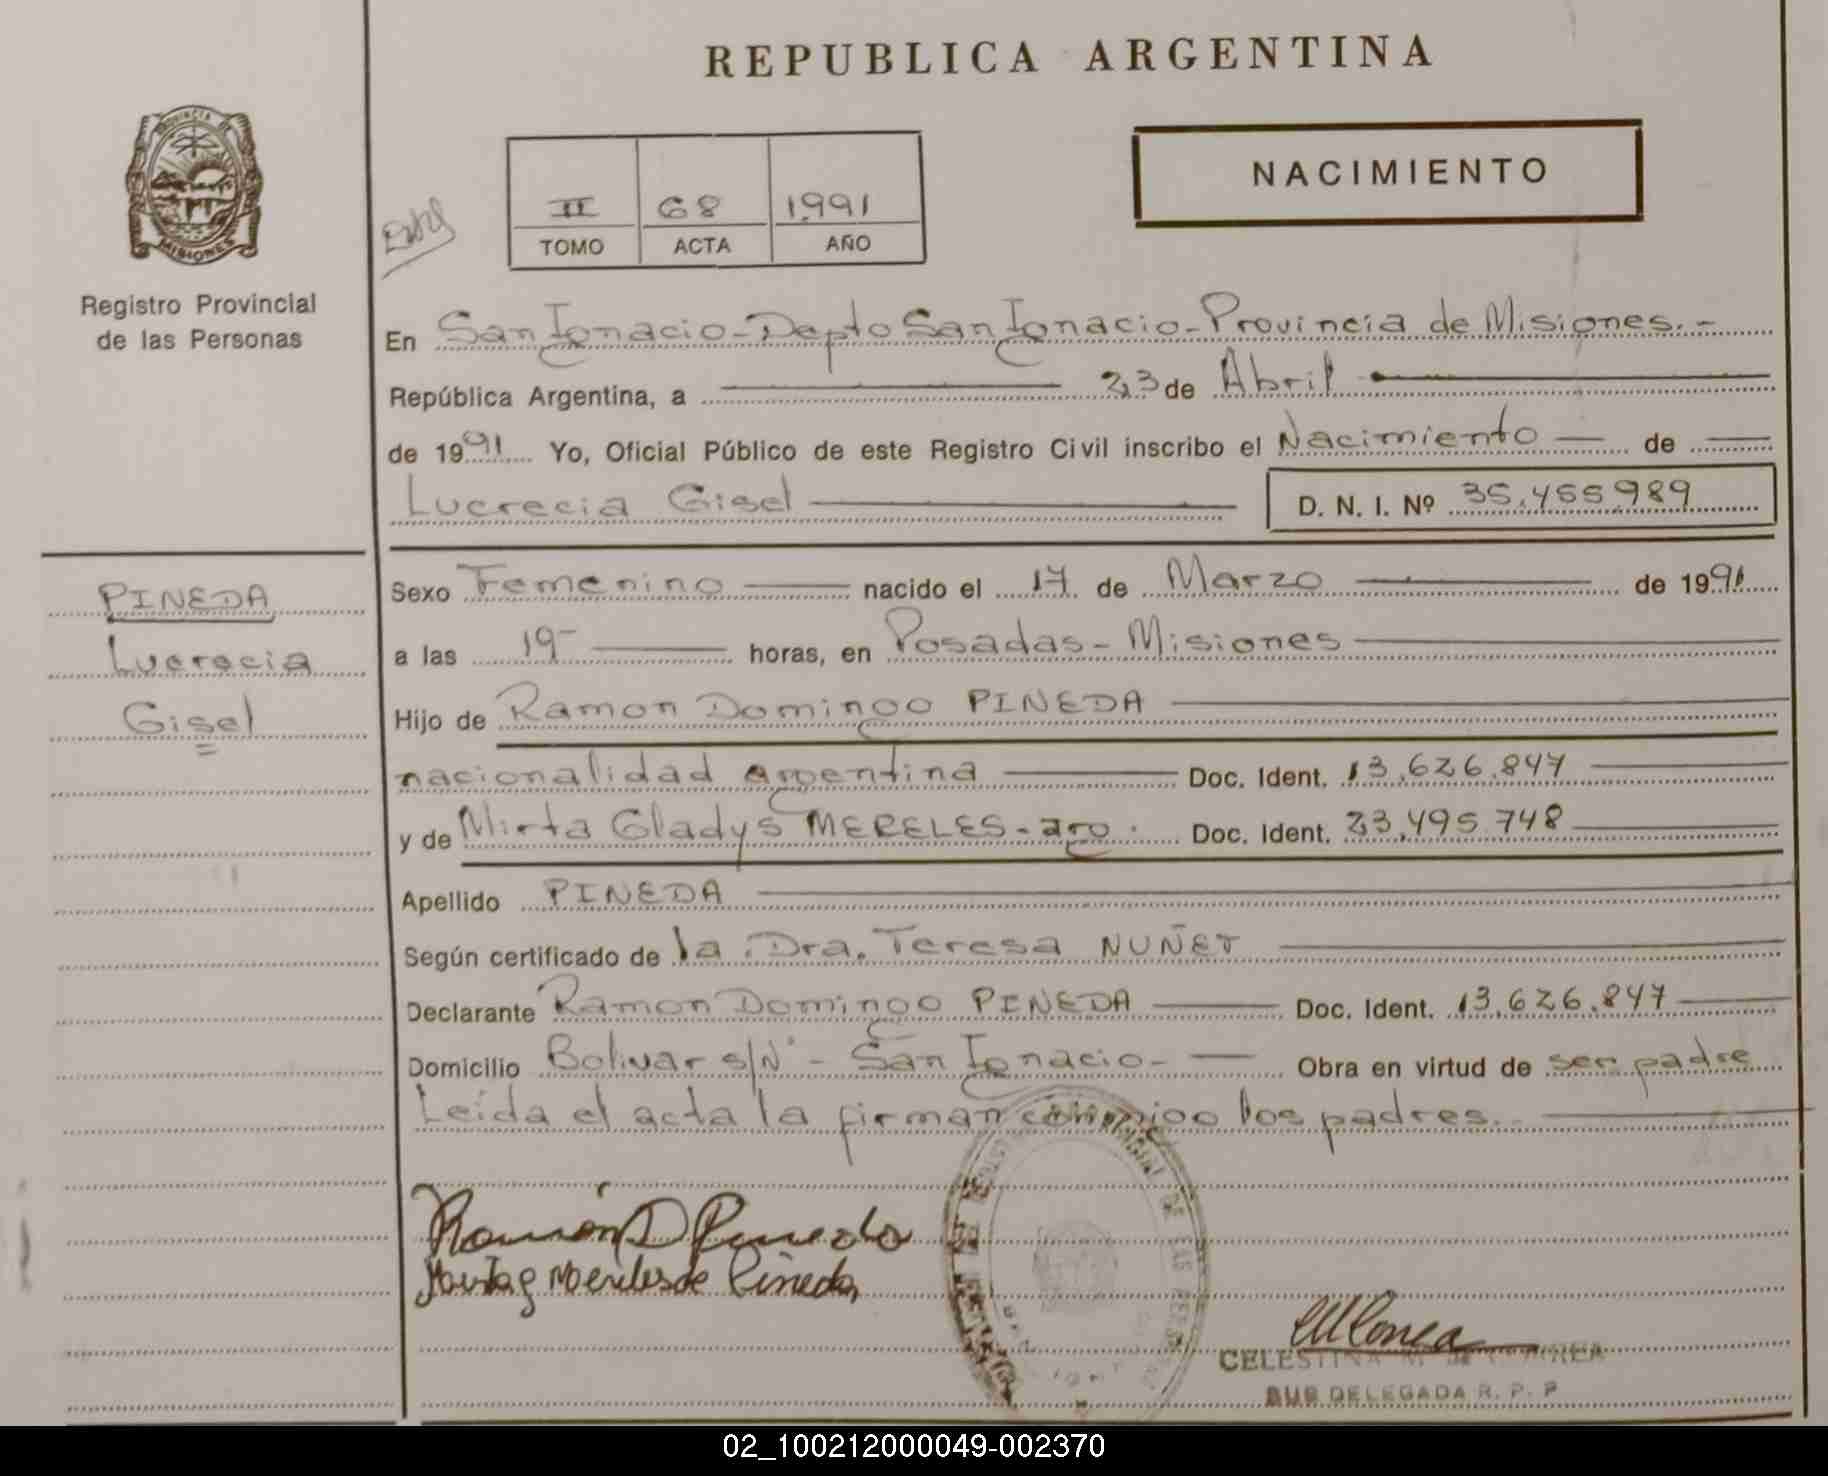 REPUBLICA ARGENTINA
PROVINCIA DE
MISIONES
Registro Provincial
de las Personas
II 68 1991
TOMO ACTA AÑO
NACIMIENTO
En San Ignacio - Depto San Ignacio - Provincia de Misiones. -
República Argentina, a 23 de Abril
de 1991 Yo, Oficial Público de este Registro Civil inscribo el Nacimiento de
Lucrecia Gisel D. N. I. Nº 35.455989
PINEDA
Lucrecia
Gisel
Sexo Femenino nacido el 17 de Marzo de 1991
a las 19- horas, en Posadas - Misiones
Hijo de Ramon Domingo PINEDA
nacionalidad argentina Doc. Ident. 13.626.847
y de Mirta Gladys MERELES - arg. Doc. Ident. 23.495 748
Apellido PINEDA
Según certificado de la Dra. Teresa NUÑET
Declarante Ramon Domingo PINEDA Doc. Ident. 13.626.847
Domicilio Bolivar s/Nº - San Ignacio - Obra en virtud de ser padre
Leída el acta la firman conmigo los padres.
Ramón D Pineda
Mirta G Mereles de Pineda
CELESTINA M. DE CORREA
SUB DELEGADA R. P. P
02_100212000049-002370